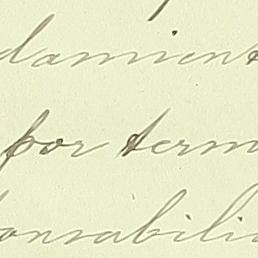 damient
por term
onsabili